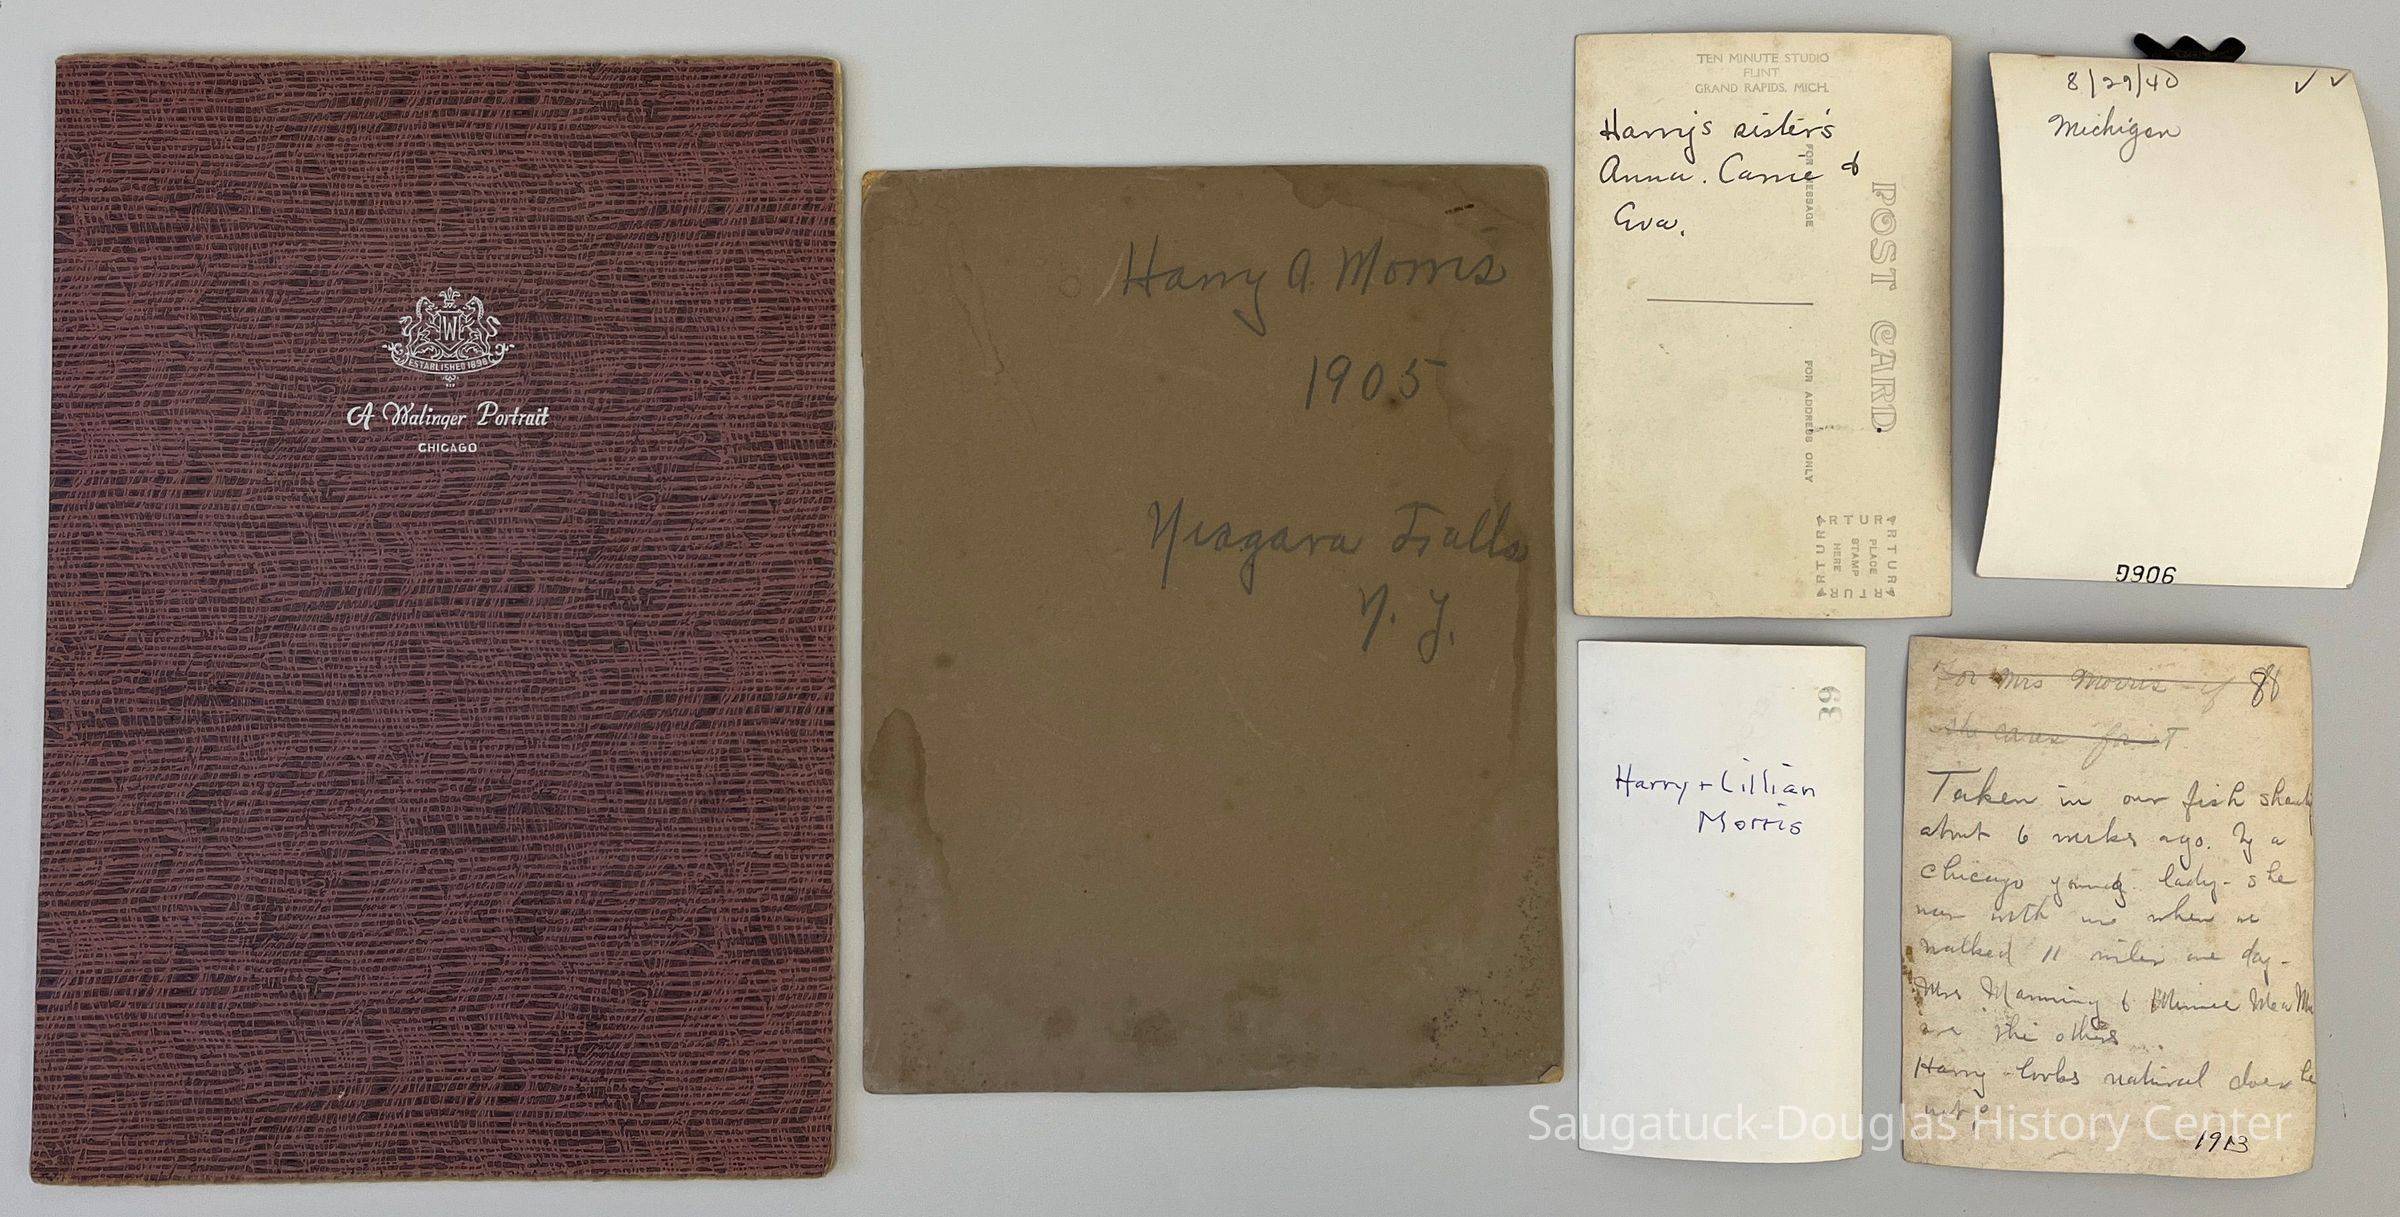 JWE
ESTABLISHED 1898
A Walinger Portrait
CHICAGO
Harry A. Morris
1905
Niagara Falls
N. Y.
TEN MINUTE STUDIO
FLINT
GRAND RAPIDS, MICH.
Harry's sister's
Anna. Carrie &
Eva.
FOR MESSAGE
POST CARD
FOR ADDRESS ONLY
ARTURA
PLACE
STAMP
HERE
8/29/40
Michigan
9906
39
Harry + Lillian
Morris
For Mrs Morris - if 88
she cares for it
Taken in our fish shanty
about 6 weeks ago. By a
Chicago young lady - she
was with us when we
walked 11 miles one day -
Mrs Manning & Minnie
are the others
Harry looks natural does he
not?
1913
Saugatuck-Douglas History Center